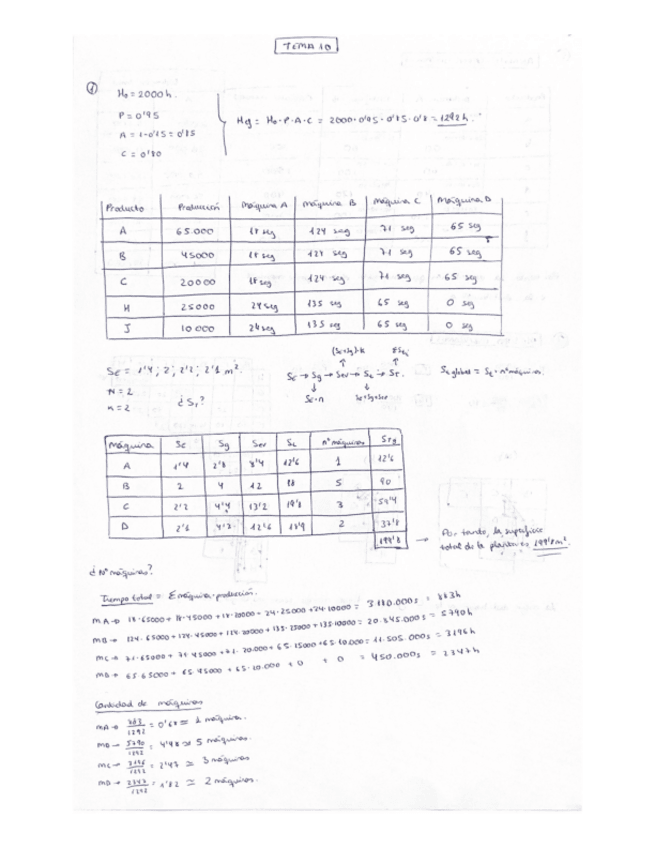 TEMA 10
①
He = 2000 h.
P = 0'95
A = 1-0'15 = 0'85
C = 0'80
Heg = He·P·A·C = 2000·0'95·0'85·0'8 = 1292 h.
Producto Producción Máquina A Máquina B Máquina C Máquina D
A 65.000 18 seg 124 seg 71 seg 65 seg
B 45000 18 seg 124 seg 71 seg 65 seg
C 20000 18 seg 124 seg 71 seg 65 seg
H 25000 24 seg 135 seg 65 seg 0 seg
J 10 000 24 seg 135 seg 65 seg 0 seg
N = 2
n = 2
¿ST?
Máquina Se Sg Sev St nº máquinas STg
A 1'4 2'8 8'4 12'6 1 12'6
B 2 4 12 18 5 90
C 2'2 4'4 13'2 19'8 3 59'4
D 12'6 2 37'8
199'8
→ Por tanto, la superficie
total de la planta es 199'8 m².
¿Nº máquinas?
Tiempo total = Σ máquina·producción.
MA → 18·65000 + 18·45000 + 18·20000 + 24·25000 + 24·10000 = 3180.000s = 883h
MB → 124·65000 + 124·45000 + 124·20000 + 135·25000 + 135·10000 = 20.845.000s = 5790h
= 11.505.000s = 3196h
= 2347h
Cantidad de máquinas
MA → = 0'68 ≈ 1 máquina.
MB → 5790/1292 = 4'48 ≈ 5 máquinas.
MC → 3196/1292 = 2'47 ≈ 3 máquinas
MD → 2347/1292 = 1'82 ≈ 2 máquinas.